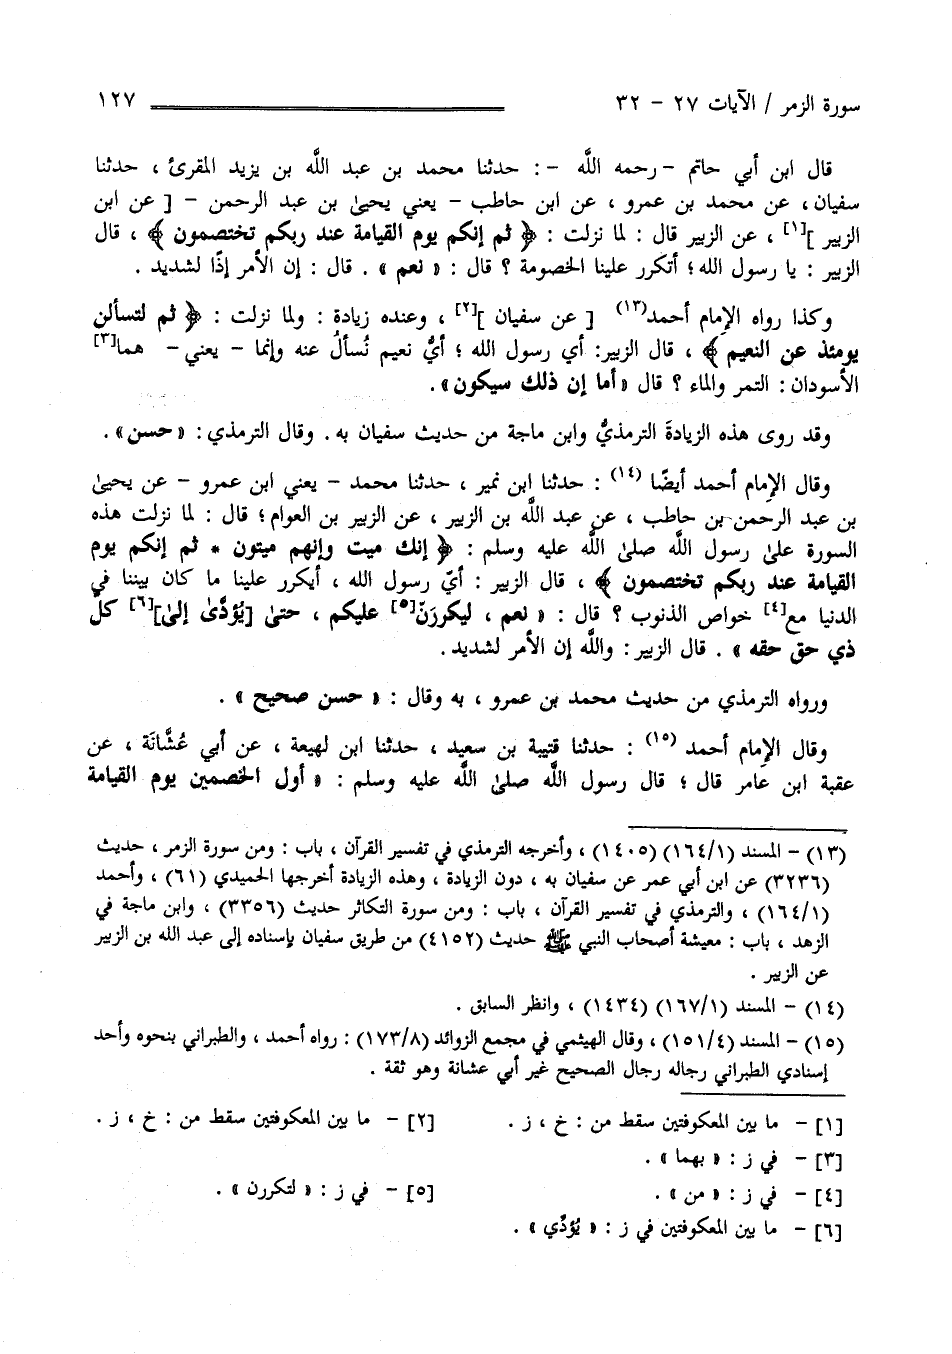 سورة الزمر / الآيات ٢٧ - ٣٢ ١٢٧
قال ابن أبي حاتم - رحمه اللَّه - : حدثنا محمد بن عبد اللَّه بن يزيد المقرئ ، حدثنا
سفيان ، عن محمد بن عمرو ، عن ابن حاطب - يعني يحيىٰ بن عبد الرحمن - [ عن ابن
الزبير ][١] ، عن الزبير قال : لما نزلت : ﴿ ثم إنكم يوم القيامة عند ربكم تختصمون ﴾ ، قال
الزبير : يا رسول الله؛ أتكرر علينا الخصومة ؟ قال : « نعم » . قال : إن الأمر إذًا لشديد .
وكذا رواه الإمام أحمد(١٣) [ عن سفيان ][٢] ، وعنده زيادة : ولما نزلت : ﴿ ثم لتسألن
يومئذ عن النعيم ﴾ ، قال الزبير: أي رسول الله ؛ أيُّ نعيم نُسألُ عنه وإنما - يعني - هما[٣]
الأسودان : التمر والماء ؟ قال « أما إن ذلك سيكون» .
وقد روى هذه الزيادةَ الترمذيُّ وابن ماجة من حديث سفيان به . وقال الترمذي : « حسن» .
وقال الإمام أحمد أيضًا (١٤) : حدثنا ابن نمير ، حدثنا محمد - يعني ابن عمرو - عن يحيىٰ
بن عبد الرحمن بن حاطب ، عن عبد اللَّه بن الزبير ، عن الزبير بن العوام؛ قال : لما نزلت هذه
السورة علىٰ رسول اللَّه صلىٰ اللَّه عليه وسلم : ﴿ إنك ميت وإنهم ميتون * ثم إنكم يوم
القيامة عند ربكم تختصمون ﴾ ، قال الزبير : أيّ رسول الله ، أيكرر علينا ما كان بيننا في
الدنيا مع[٤] خواص الذنوب ؟ قال : « نعم ، ليكررَنّ[٥] عليكم ، حتىٰ [يُؤدَّىٰ إلىٰ][٦] كلِّ
ذي حق حقه » . قال الزبير : واللَّه إن الأمر لشديد .
ورواه الترمذي من حديث محمد بن عمرو ، به وقال : « حسن صحيح » .
وقال الإمام أحمد (١٥) : حدثنا قتيبة بن سعيد ، حدثنا ابن لهيعة ، عن أبي عُشَّانَة ، عن
عقبة ابن عامر قال ؛ قال رسول اللَّه صلىٰ اللَّه عليه وسلم : « أول الخصمين يوم القيامة
(١٣) - المسند (١٦٤/١) (١٤٠٥) ، وأخرجه الترمذي في تفسير القرآن ، باب : ومن سورة الزمر ، حديث
(٣٢٣٦) عن ابن أبي عمر عن سفيان به ، دون الزيادة ، وهذه الزيادة أخرجها الحميدي (٦١) ، وأحمد
(١٦٤/١) ، والترمذي في تفسير القرآن ، باب : ومن سورة التكاثر حديث (٣٣٥٦) ، وابن ماجة في
الزهد ، باب : معيشة أصحاب النبي ﷺ حديث (٤١٥٢) من طريق سفيان بإسناده إلى عبد الله بن الزبير
عن الزبير .
(١٤) - المسند (١٦٧/١) (١٤٣٤) ، وانظر السابق .
(١٥) - المسند (١٥١/٤) ، وقال الهيثمي في مجمع الزوائد (١٧٣/٨) : رواه أحمد ، والطبراني بنحوه وأحد
إسنادي الطبراني رجاله رجال الصحيح غير أبي عشانة وهو ثقة .
[١] - ما بين المعكوفتين سقط من : خ ، ز . [٢] - ما بين المعكوفتين سقط من : خ ، ز .
[٣] - في ز : « بهما » .
[٤] - في ز : « من » . [٥] - في ز : « لتكررن » .
[٦] - ما بين المعكوفتين في ز : « يُؤدِّي » .